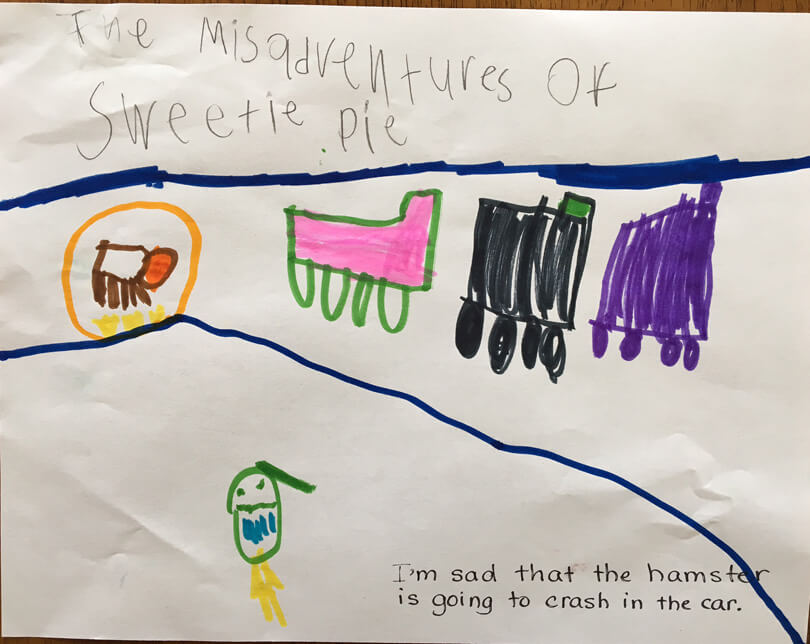 The Misadventures Of
Sweetie pie
I'm sad that the hamster
is going to crash in the car.